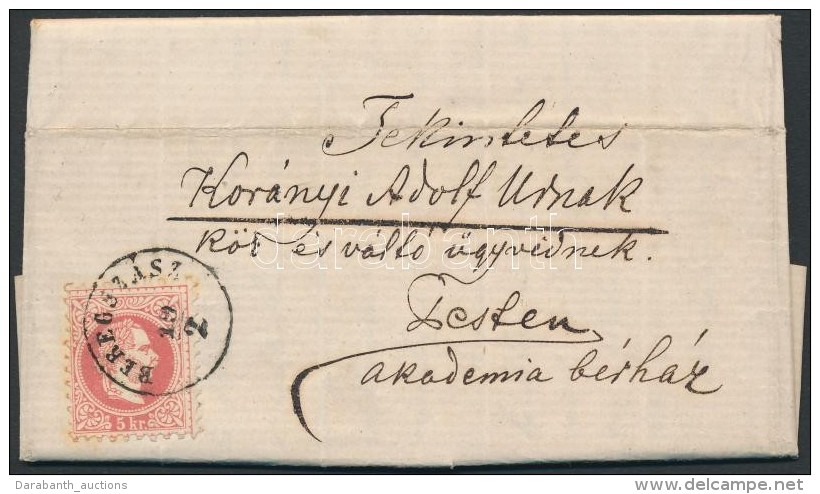 Tekintetes
Korányi Adolf Urnak
köz és váltó ügyvédnek.
Pesten
akademia bérház
BEREGSZÁSZ
19
2
5 kr.
darabanth
Darabanth_auctions
www.delcampe.net